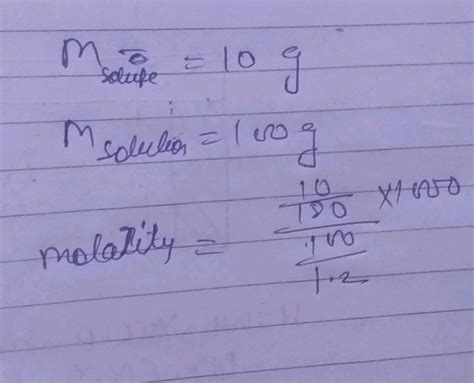 M solute = 10 g
M solution = 100 g
molarity = 10/180 × 1000 / 100/1.2